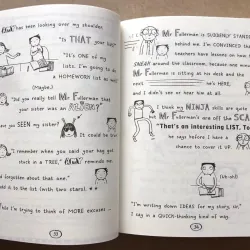 has been looking over my shoulder.
"Is THAT your list?"
"It's ONE of my
lists. I'm going to do
a HOMEWORK list as well."
(Maybe.)
"Did you really tell Mr Fullerman
that your sister was an
"Have you SEEN my sister?"
It could be
"I remember when you said your bag got
stuck in a TREE," reminds me.
forgotten about that one.
add it to the list (with two stars).
I'm trying to think of MORE excuses
33
Mr Fullerman is SUDDENLY STANDING
behind me. I'm CONVINCED that
teachers have lessons on how to
SNEAK around the classroom, because one minute
Mr Fullerman is sitting at his desk and the
next
I didn't see or hear him at all.
I think my NINJA skills are quite
Mr Fullerman's are off the SCALE.
"That's an interesting LIST, Tom."
he says before I have a
chance to cover it up.
(Uh-oh!)
"I'm writing down IDEAS for my story, sir."
I say in a QUICK-thinking kind of way.
34